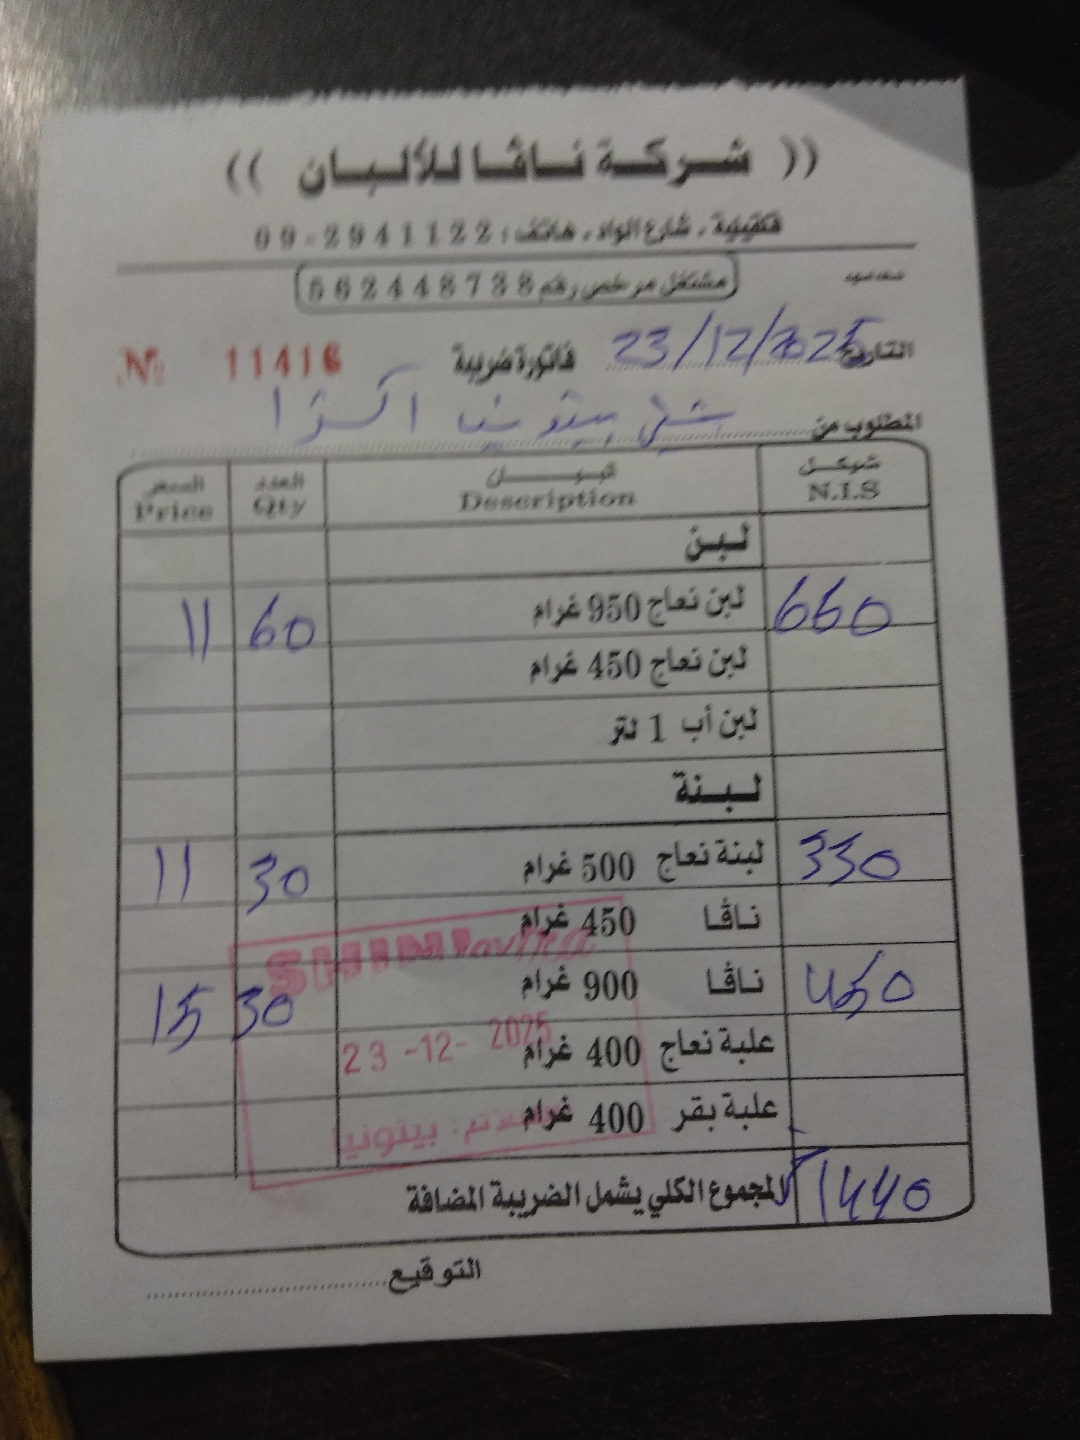 (( شركة ناڤا للألبان ))
فقيقيقة . شارع الواد . هاتف : 2941122 - 09
مشتغل مرخص رقم 562448738
التاريخ 23/12/2025 فاتورة ضريبة № 11416
المطلوب من بيتونيا اكسترا
شيكل البيــان العدد السعر
N.I.S Description Qty Price
لبن
660 لبن نعاج 950 غرام 60 11
لبن نعاج 450 غرام
لبن أب 1 لتر
لبنة
330 لبنة نعاج 500 غرام 30 11
ناڤا 450 غرام
SHINI
450 ناڤا 900 غرام 30 15
23-12-2025
علبة نعاج 400 غرام
علبة بقر 400 غرام
بيتونيا
المجموع الكلي يشمل الضريبة المضافة 1440
التوقيع